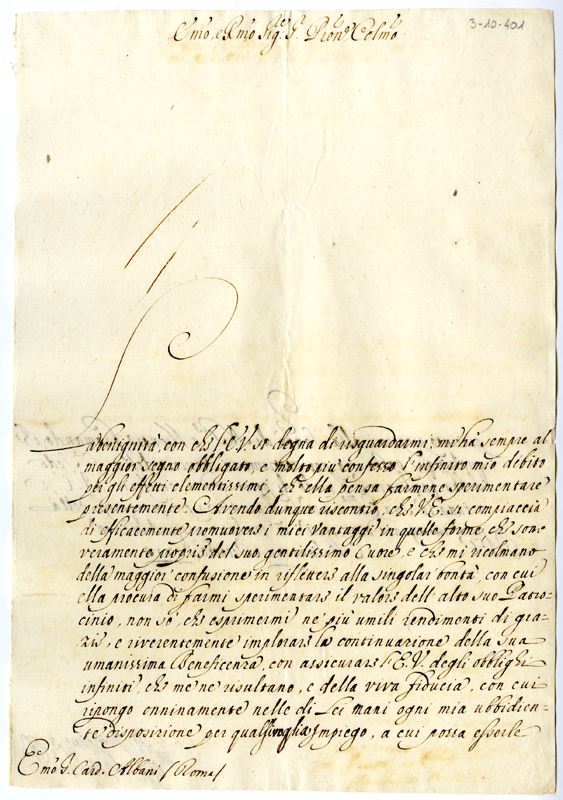 3-10-401
Emo, e Rmo Sig.re S.r Pron.e Colmo
La benignità, con chè l'E.V. si degna di risguardarmi, m'hà sempre al
maggior segno obbligato, e molto più confesso l'infinito mio debito
per gli effetti clementissimi, che ella pensa farmene sperimentare
presentemente. Avendo dunque riscontro, che V.E. si compiaccia
di efficacemente promuovere i miei vantaggi in quelle forme, che sono
veramente proprie del suo gentilissimo Cuore, e che mi ricolmano
della maggior confusione in riflettere alla singolar bontà, con cui
ella procura di farmi sperimentare il valore dell'alto suo Patro-
cinio, non sò, che esprimermi ne' più umili rendimenti di gra-
zie, e riverentemente implorare la continuazione della sua
umanissima Beneficenza, con assicurare l'E.V. degli obblighi
infiniti, che me ne risultano, e della viva fiducia, con cui
ripongo onninamente nelle di Lei mani ogni mia ubbidien-
te disposizione per qualsivoglia Impiego, a cui possa esserle
Emo S. Card. Albani / Roma /